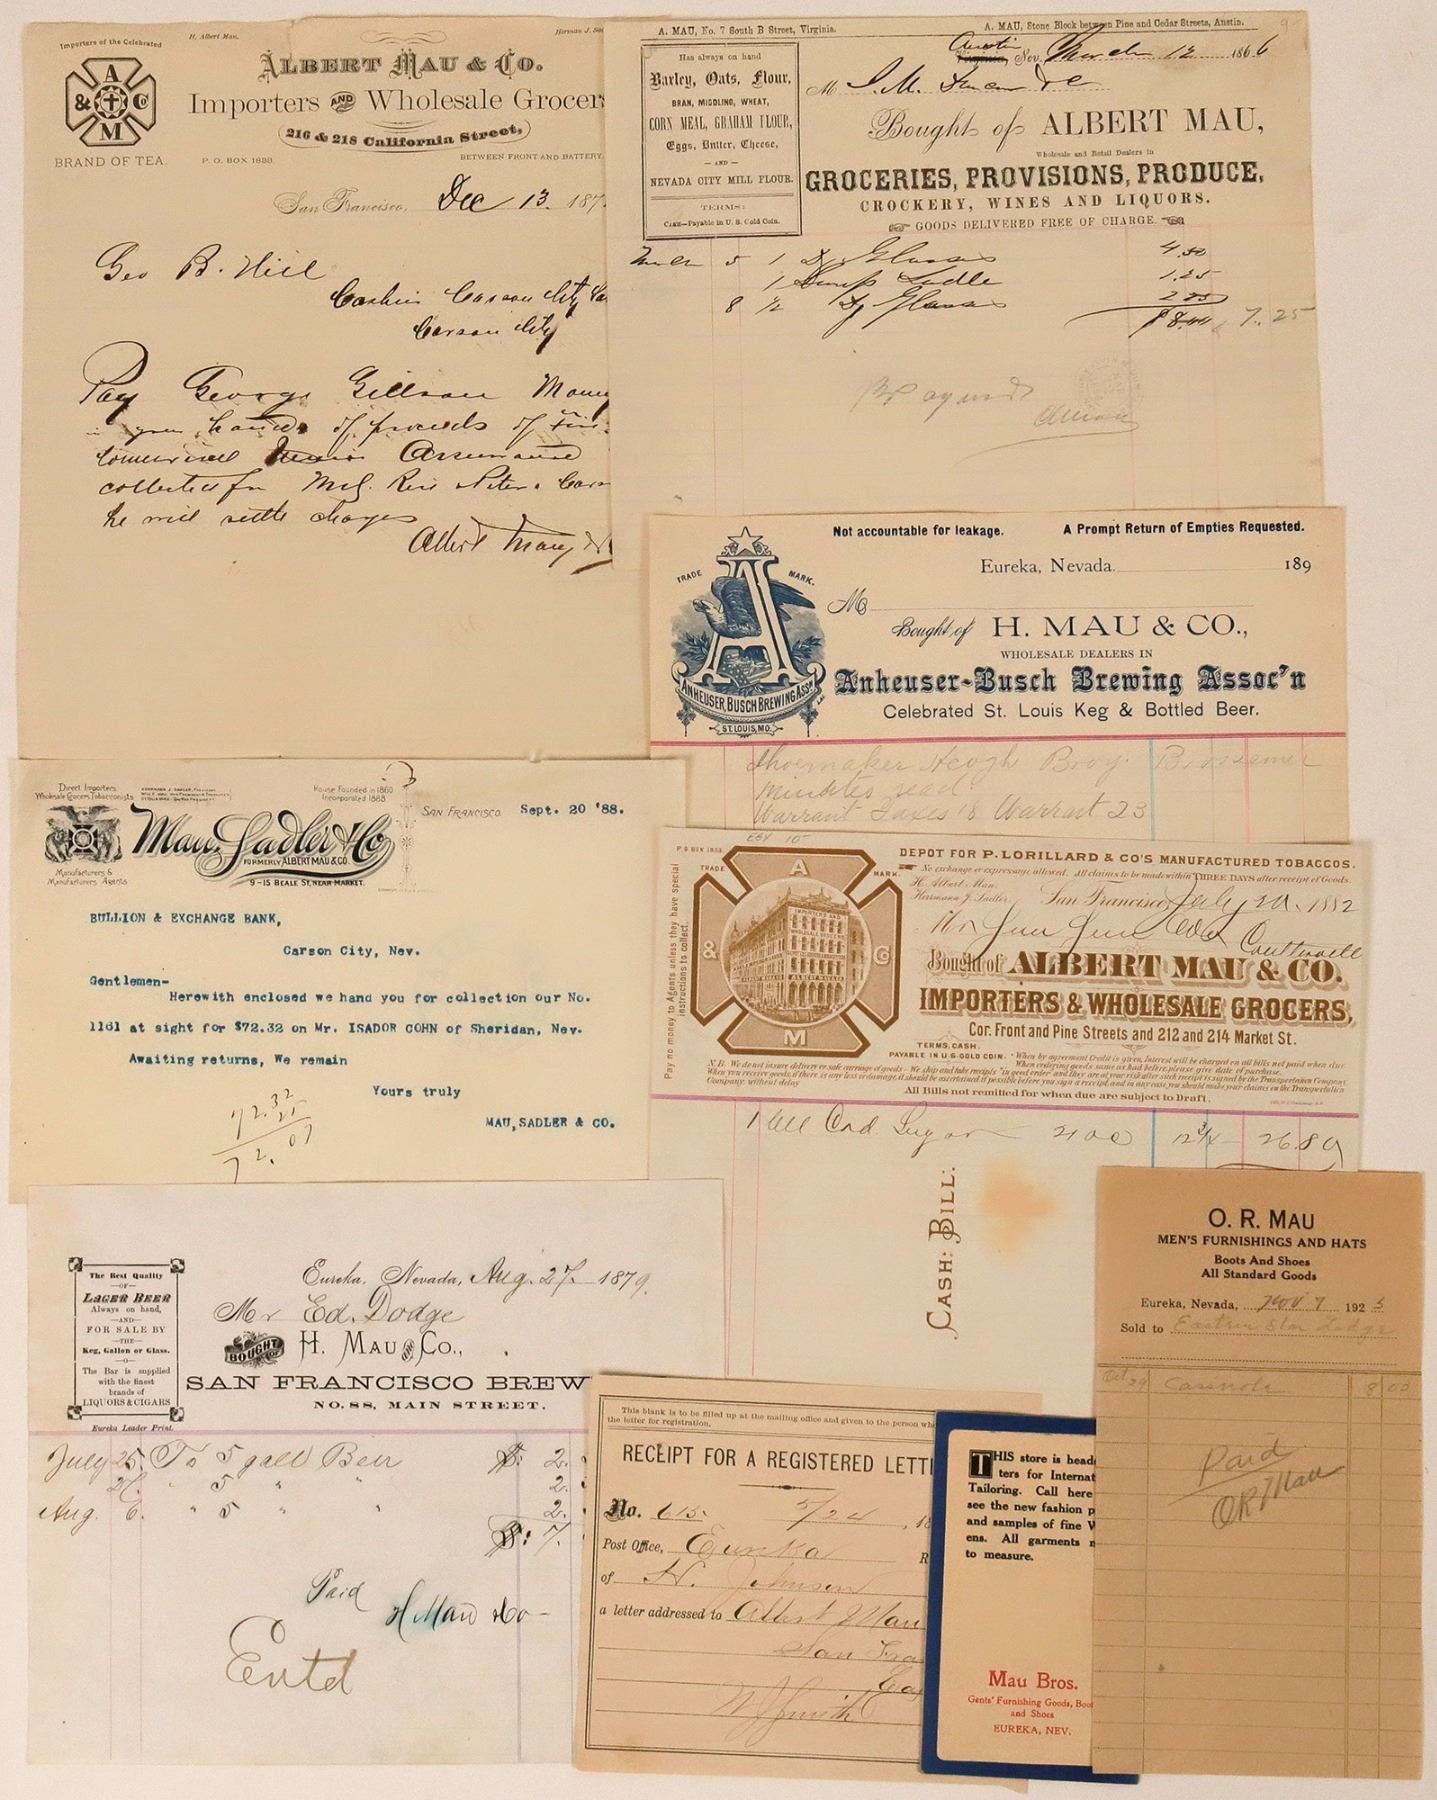 Importers of the Celebrated
A & Co M
BRAND OF TEA.
H. Albert Mau.
ALBERT MAU & CO.
Importers AND Wholesale Grocer
216 & 218 California Street,
P. O. BOX 1833.
BETWEEN FRONT AND BATTERY.
San Francisco, Dec 13. 187
Geo B. Hill
Cashier Carson City
Carson City
Pay George Gillson Money
in your hands of proceeds of
Assurance
collected for
he will settle charges
Albert Mau &
A. MAU, No. 7 South B Street, Virginia.
A. MAU, Stone Block between Pine and Cedar Streets, Austin.
Has always on hand
Barley, Oats, Flour,
BRAN, MIDDLING, WHEAT,
CORN MEAL, GRAHAM FLOUR,
Eggs, Butter, Cheese,
—AND—
NEVADA CITY MILL FLOUR.
TERMS:
CASH—Payable in U. S. Gold Coin.
Austin
Virginia, Nev. March 12 1866
M
Bought of ALBERT MAU,
Wholesale and Retail Dealers in
GROCERIES, PROVISIONS, PRODUCE,
CROCKERY, WINES AND LIQUORS.
GOODS DELIVERED FREE OF CHARGE.
March 5 1 Dz Glasses 4.50
1 Soup Ladle 1.25
8 1/2 Dz Glasses 2.25
7.25
Not accountable for leakage.
A Prompt Return of Empties Requested.
Eureka, Nevada. 189
M
TRADE MARK.
A
ANHEUSER BUSCH BREWING ASS'N
ST. LOUIS, MO.
Bought of H. MAU & CO.,
WHOLESALE DEALERS IN
Anheuser-Busch Brewing Assoc'n
Celebrated St. Louis Keg & Bottled Beer.
Shoemaker Keogh Bray.
minutes read
Warrant Taxes & Warrant 23
Direct Importers
Wholesale Grocers Tobacconists
House Founded in 1860
Incorporated 1888
Mau, Sadler & Co
FORMERLY ALBERT MAU & CO.
9-15 BEALE ST. NEAR MARKET.
Manufacturers &
Manufacturers Agents
SAN FRANCISCO Sept. 20 '88.
BULLION & EXCHANGE BANK,
Carson City, Nev.
Gentlemen-
Herewith enclosed we hand you for collection our No.
1161 at sight for $72.32 on Mr. ISADOR COHN of Sheridan, Nev.
Awaiting returns, We remain
Yours truly
MAU, SADLER & CO.
72.32
25
72.07
P. O BOX 1833.
TRADE MARK.
A & Co M
Pay no money to Agents unless they have special
instructions to collect.
DEPOT FOR P. LORILLARD & CO'S MANUFACTURED TOBACCOS.
No exchange or expressage allowed. All claims to be made within THREE DAYS after receipt of Goods.
H. Albert Mau.
Herrmann J. Sadler.
San Francisco, July 20. 1882
Mr
Bought of ALBERT MAU & CO.
IMPORTERS & WHOLESALE GROCERS,
Cor. Front and Pine Streets and 212 and 214 Market St.
TERMS, CASH.
PAYABLE IN U.S. GOLD COIN.
When by agreement Credit is given, Interest will be charged on all bills not paid when due.
When ordering goods same as had before, please give date of purchase.
N.B. We do not insure delivery or safe carriage of goods—We ship and take receipts "in good order" and they are at your risk after such receipt is signed by the Transportation Company.
When you receive goods, if there is any loss or damage, it should be ascertained if possible before you sign a receipt, and in any case you should make your claims on the Transportation
Company without delay
All Bills not remitted for when due are subject to Draft.
CASH: BILL:
The Best Quality
—OF—
LAGER BEER
Always on hand,
—AND—
FOR SALE BY
—THE—
Keg, Gallon or Glass.
The Bar is supplied
with the finest
brands of
LIQUORS & CIGARS
Eureka Leader Print.
Eureka, Nevada, Aug. 27 1879.
Mr Ed. Dodge
BOUGHT OF H. MAU AND CO.,
SAN FRANCISCO BREW
NO. 88, MAIN STREET.
July 25. To 5 gall Beer $ 2.
" 5 " " 2.
Aug. 6. " 5 " " 2.
$: 7.
Paid
H Mau & Co
Entd
This blank is to be filled up at the mailing office and given to the person wh
the letter for registration.
RECEIPT FOR A REGISTERED LETT
No. 615. 5/24, 18
Post Office, Eureka
of H. Johnson
a letter addressed to Albert Mau
San Fra
Cal
THIS store is head
ters for Internat
Tailoring. Call here
see the new fashion p
and samples of fine W
ens. All garments m
to measure.
Mau Bros.
Gents' Furnishing Goods, Boot
and Shoes
EUREKA, NEV.
O. R. MAU
MEN'S FURNISHINGS AND HATS
Boots And Shoes
All Standard Goods
Eureka, Nevada, Nov 7 192
Sold to Eastern Star Lodge
Oct 29 8 00
Paid
OR Mau